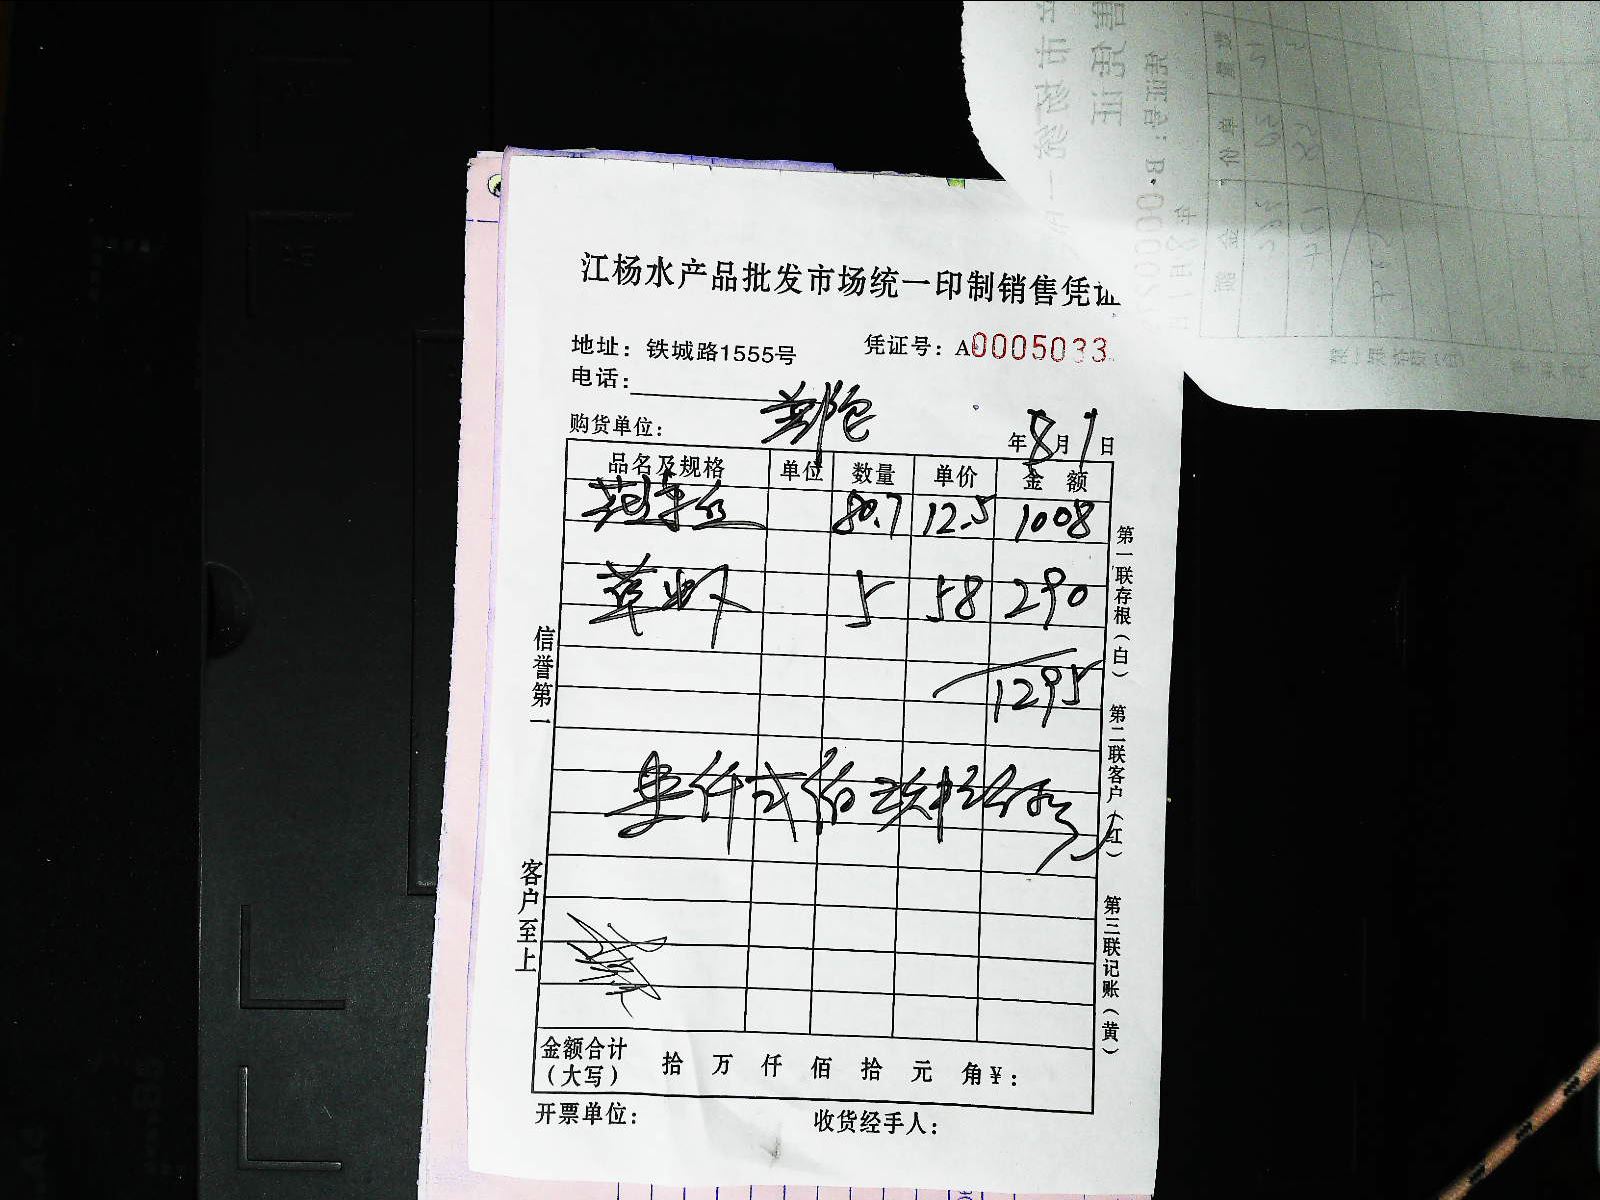 江杨水产品批发市场统一印制销售凭证
地址：铁城路1555号 凭证号：A0005033
电话：
购货单位： 年8月1日
品名及规格 单位 数量 单价 金额
80.7 12.5 1008
草虾 5 58 290
1295
壹仟贰佰玖拾伍
金额合计（大写） 拾 万 仟 佰 拾 元 角 ¥：
开票单位： 收货经手人：
信誉第一
客户至上
第一联存根（白）
第二联客户（红）
第三联记账（黄）